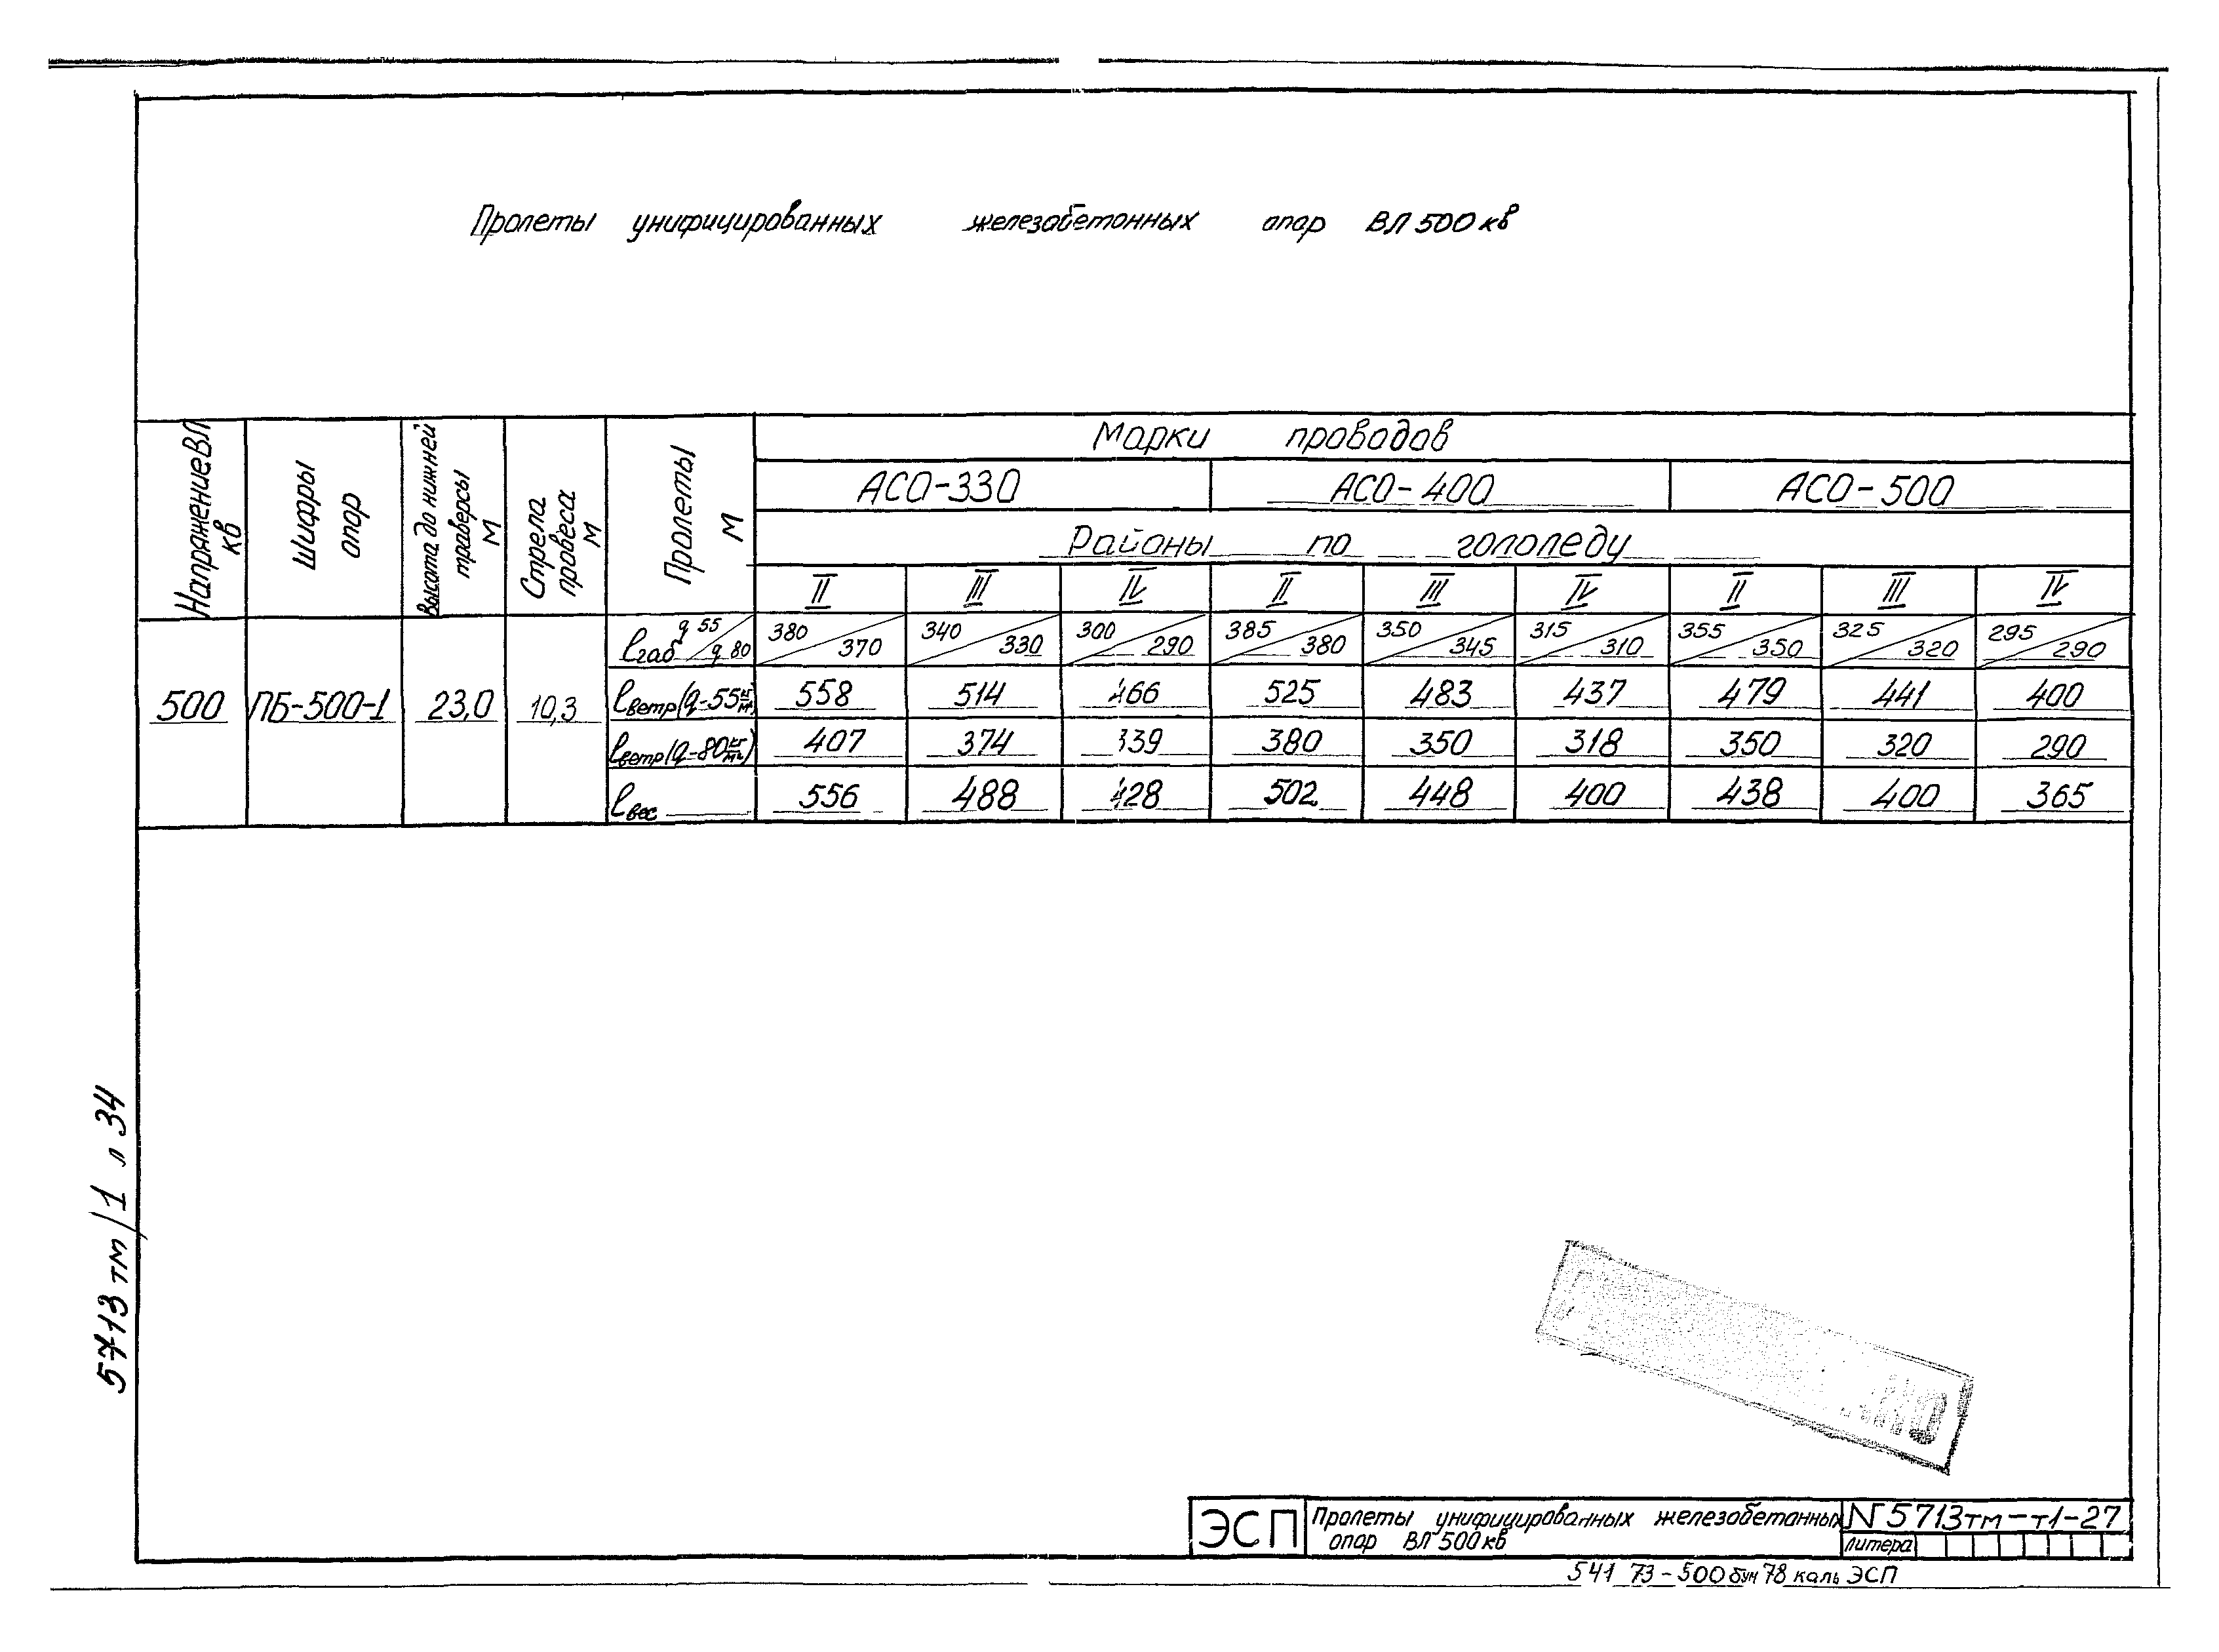 Пролеты унифицированных железобетонных опор ВЛ 500 кв
Напряжение ВЛ кв
Шифры опор
Высота до нижней траверсы м
Стрела провеса м
Пролеты м
Марки проводов
АСО-330 АСО-400 АСО-500
Районы по гололеду
II III IV II III IV II III IV
lгаб q 55 / q 80 380/370 340/330 300/290 385/380 350/345 315/310 355/350 325/320 295/290
500 ПБ-500-1 23,0 10,3
lветр (q-55 кг/м²) 558 514 466 525 483 437 479 441 400
lветр (q-80 кг/м²) 407 374 339 380 350 318 350 320 290
lвес 556 488 428 502 448 400 438 400 365
5713 тм/1 л 34
ЭСП
Пролеты унифицированных железобетонных
опор ВЛ 500 кв
N 5713тм-т1-27
литера
541 73-500 бум 78 каль ЭСП